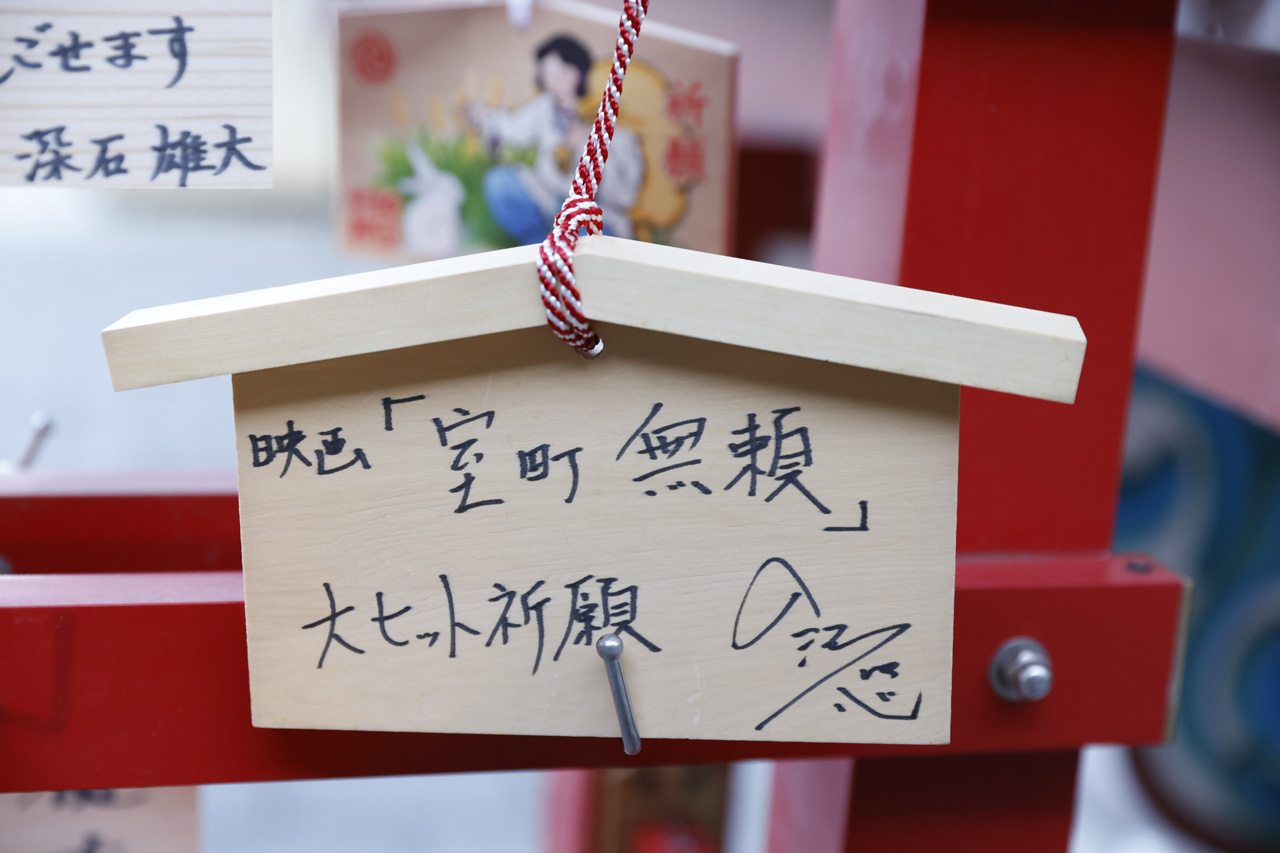 ごせます
深石 雄大
祈願
映画「室町無頼」
大ヒット祈願